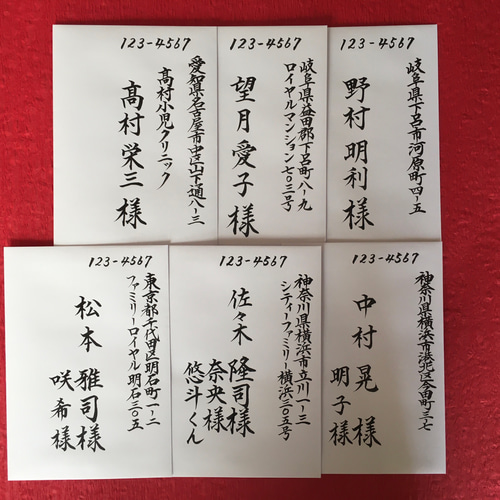 123-4567
岐阜県下呂市河原町四-五
野村明利様
123-4567
岐阜県益田郡下呂町八-九
ロイヤルマンション七〇三号
望月愛子様
123-4567
愛知県名古屋市中区山下通八-三
髙村小児クリニック
髙村栄三様
123-4567
神奈川県横浜市港北区今田町三-七
中村晃様
明子様
123-4567
神奈川県横浜市立川一-三
シティーファミリー横浜三〇五号
佐々木隆司様
奈央様
悠斗くん
123-4567
東京都千代田区明石町一-二
ファミリーロイヤル明石三〇五
松本雅司様
咲希様